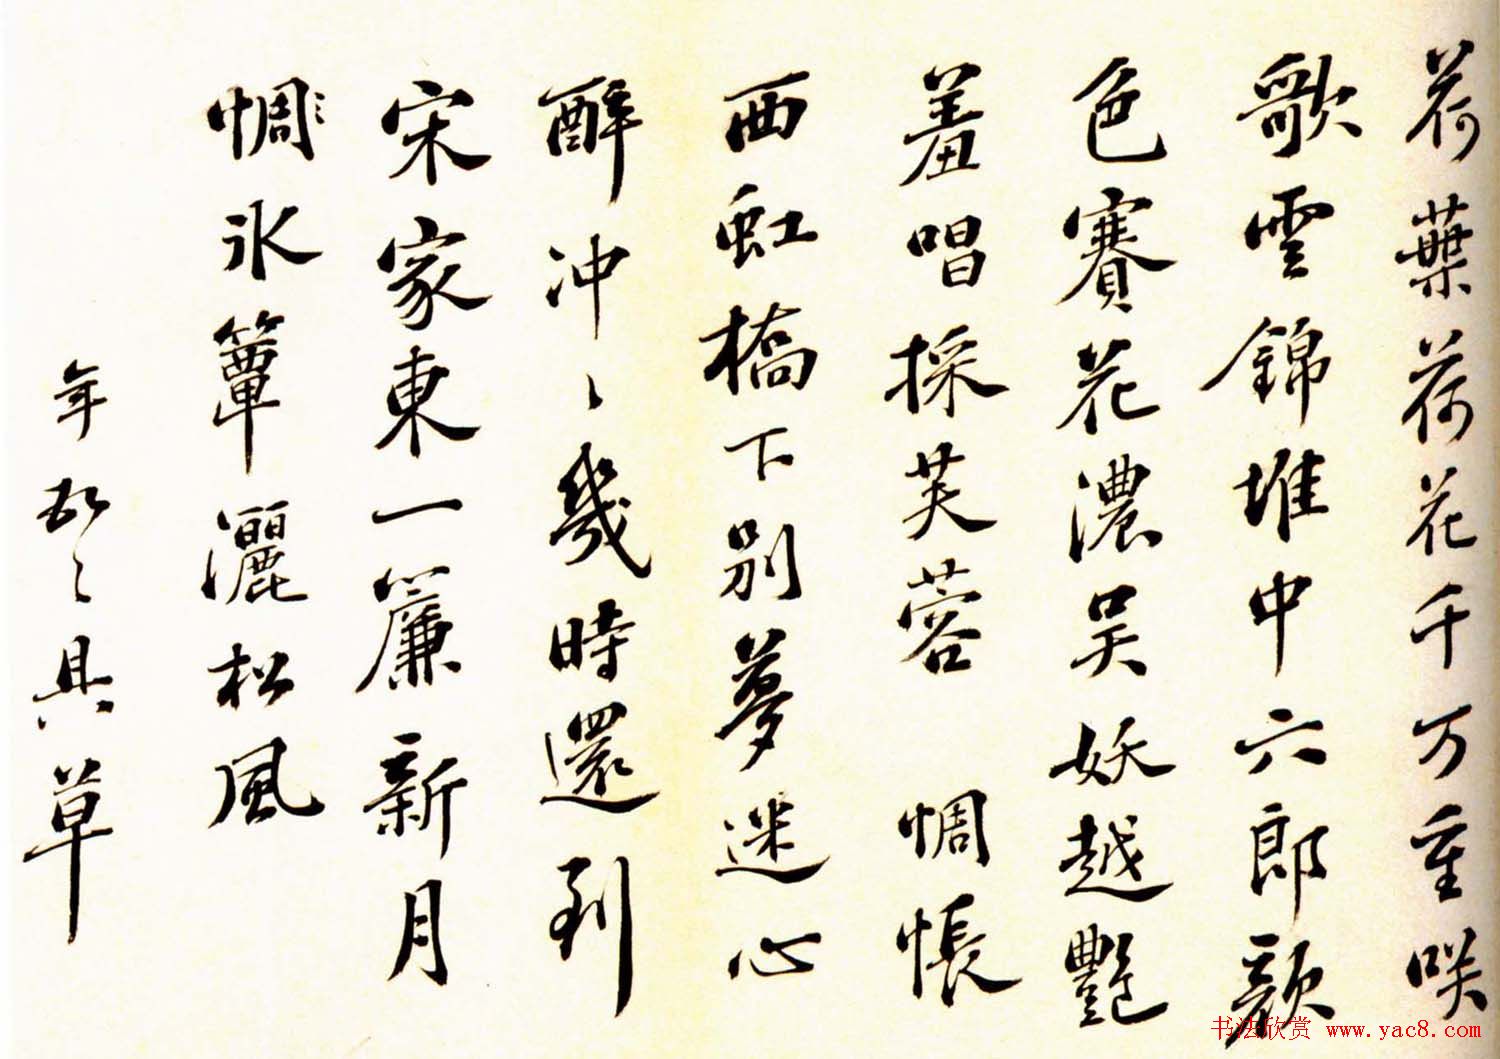 荷葉荷花千万重咲
歌雲錦堆中六郎顏
色賽花濃吴妖越艷
羞唱採芙蓉 惆悵
西虹橋下別夢迷心
醉冲〻幾時還到
宋家東一簾新月
惆冰簟灑松風
年 具草
书法欣赏 www.yac8.com